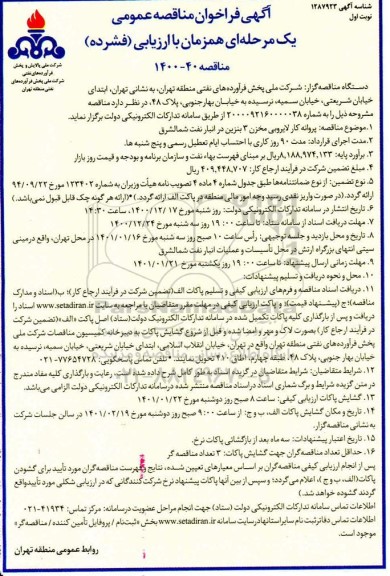 شناسه آگهی ۱۲۸۷۹۲۳
نوبت اول
آگهی فراخوان مناقصه عمومی
یک مرحله‌ای همزمان با ارزیابی (فشرده)
مناقصه ۴۰-۱۴۰۰
شرکت ملی پالایش و پخش فرآورده‌های نفتی
شرکت ملی پخش فرآورده‌های نفتی منطقه تهران
دستگاه مناقصه‌گزار: شرکت ملی پخش فرآورده‌های نفتی منطقه تهران، به نشانی تهران، ابتدای
خیابان شریعتی، خیابان سمیه، نرسیده به خیابان بهارجنوبی، پلاک ۴۸، در نظر دارد مناقصه
مشروحه ذیل را به شماره ۲۰۰۰۰۹۲۱۶۰۰۰۰۰۳۸ از طریق سامانه تدارکات الکترونیکی دولت برگزار نماید.
۱. موضوع مناقصه: پروانه کار لایروبی مخزن ۳ بنزین در انبار نفت شمالشرق
۲. مدت اجرای قرارداد: مدت ۹۰ روز کاری با احتساب ایام تعطیل رسمی و پنج شنبه ها.
۳. برآورد پایه: ۸,۱۸۸,۹۷۴,۱۳۳ریال بر مبنای فهرست بهاء نفت و سازمان برنامه و بودجه و قیمت روز بازار
۴. مبلغ تضمین شرکت در فرآیند ارجاع کار: ۴۰۹,۴۴۸,۷۰۷ ریال.
۵. نوع تضمین: از نوع ضمانتنامه‌ها طبق جدول شماره ۴ ماده ۴ تصویب نامه هیأت وزیران به شماره ۱۲۳۴۰۲ مورخ ۹۴/۰۹/۲۲
ارائه گردد.(در صورت واریز نقدی رسید وجه به امور مالی منطقه در پاکت الف ارائه گردد.)*(ارائه هر گونه چک قابل قبول نمی‌باشد.)
۶. تاریخ انتشار در سامانه تدارکات الکترونیکی دولت: روز شنبه مورخ ۱۴۰۰/۱۲/۱۷، ساعت ۱۴:۳۰
۷. مهلت دریافت اسناد از سامانه ستاد: تا ساعت ۱۹:۰۰ روز سه شنبه مورخ ۱۴۰۰/۱۲/۲۴
۸. تاریخ و محل بازدید و جلسه توجیهی: رأس ساعت ۱۰ صبح روز سه شنبه مورخ ۱۴۰۱/۰۱/۱۶ در محل تهران، واقع درمینی
سیتی انتهای بزرگراه ارتش در محل تأسیسات و عملیات انبار نفت شمالشرق
۹. مهلت زمانی ارسال پیشنهاد: تا ساعت ۱۹:۰۰ روز یکشنبه مورخ ۱۴۰۱/۰۱/۲۱
۱۰. محل و نحوه دریافت و تسلیم پیشنهادات:
۱۱. دریافت اسناد مناقصه و فرم‌های ارزیابی کیفی و تسلیم پاکات الف(تضمین شرکت در فرآیند ارجاع کار)؛ ب(اسناد و مدارک
مناقصه)؛ج (پیشنهاد قیمت)؛ و پاکت ارزیابی کیفی در مهلت مقرر متقاضیان با مراجعه به سایت www.setadiran.ir اسناد را
دریافت و پس از بارگذاری کلیه پاکات تکمیل شده در سامانه تدارکات الکترونیک دولت(ستاد)؛ اصل پاکت «الف»(تضمین شرکت
در فرآیند ارجاع کار) بصورت لاک و مهر و امضا شده و قبل از شروع گشایش پاکات به دبیرخانه کمیسیون مناقصات شرکت ملی
پخش فرآورده‌های نفتی منطقه تهران واقع در تهران، خیابان انقلاب اسلامی، ابتدای خیابان شریعتی، خیابان سمیه، نرسیده به
خیابان بهار جنوبی، پلاک ۴۸، طبقه چهارم، اطاق ۴۱۰ تحویل نمایند. * تلفن تماس پاسخگویی: ۷۷۶۵۴۷۲۸-۰۲۱
۱۲. شرایط متقاضیان: شرایط متقاضیان در گزیده اسناد به طور کامل شرح داده شده است. رعایت و بارگذاری کلیه مفاد مندرج
در متن گزیده شرایط و برگ شماری اسناد دراسناد مناقصه منتشر شده درسامانه تدارکات الکترونیکی دولت الزامی می‌باشد.
۱۳. گشایش پاکات ارزیابی کیفی: ساعت ۸ صبح روز دوشنبه مورخ ۱۴۰۱/۰۱/۲۲
۱۴. تاریخ و مکان گشایش پاکات الف، ب و ج: از ساعت ۹:۰۰ صبح روز دوشنبه مورخ ۱۴۰۱/۰۲/۱۹ در سالن جلسات شرکت
به نشانی مناقصه گزار.
۱۵. تاریخ اعتبار پیشنهادات: سه ماه بعد از بازگشائی پاکات نرخ.
۱۶. حداقل تعداد مناقصه گران جهت گشایش پاکات: ۳ تعداد مناقصه گر
پس از انجام ارزیابی کیفی مناقصه‌گران بر اساس معیارهای تعیین شده، نتایج و فهرست مناقصه‌گران مورد تأیید برای گشودن
پاکات(الف، ب و ج)، اعلام می‌گردد؛ و سپس از بین آنها پاکات پیشنهاد نرخ شرکت‌کنندگانی که در ارزیابی شکلی مورد تأییدواقع
گردند گشوده خواهد شد.)
اطلاعات تماس سامانه تدارکات الکترونیکی دولت (ستاد) جهت انجام مراحل عضویت درسامانه: مرکز تماس: ۴۱۹۳۴-۰۲۱
اطلاعات تماس دفاترثبت نام سایراستانها درسایت سامانه www.setadiran.ir بخش «ثبت‌نام / پروفایل تأمین کننده / مناقصه‌گر»
موجود است.
روابط عمومی منطقه تهران